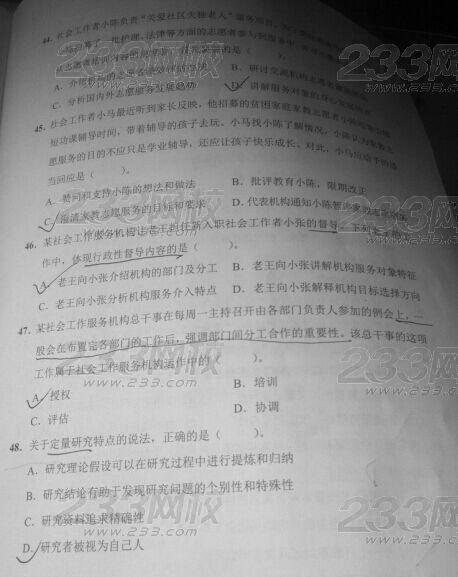 44. 社会工作者小陈负责“关爱社区失独老人”服务项目,为了
护理、法律等方面的志愿者参与到服务中
C. 分析国内外志愿服务发展趋势
D. 讲解服务对象的身心发展特点
45. 社会工作者小马最近听到家长反映,他招募的贫困家庭家教志愿者小陈经常缩
短功课辅导时间,带着辅导的孩子去玩。小马找小陈了解情况,小陈认为家教志
愿服务的目的不应只是学业辅导,还应让孩子快乐成长。对此,小马应给予的适
当回应是( )。
A. 赞同和支持小陈的想法和做法
B. 批评教育小陈,限期改正
C. 澄清家教志愿服务的目标和要求
D. 代表机构通知小陈
46. 某社会工作服务机构让老王担任新入职社会工作者小张的督导,下列老王的工
作中,体现行政性督导内容的是( )。
A. 老王向小张介绍机构的部门及分工
B. 老王向小张讲解机构服务对象特征
C. 老王向小张分析机构服务介入特点
D. 老王向小张解释机构目标选择方向
47. 某社会工作服务机构总干事在每周一主持召开由各部门负责人参加的例会上,一
般会在布置完各部门的工作后,强调部门间分工合作的重要性。该总干事的这项
工作属于社会工作服务机构运作中的( )。
A. 授权
B. 培训
C. 评估
D. 协调
48. 关于定量研究特点的说法,正确的是( )。
A. 研究理论假设可以在研究过程中进行提炼和归纳
B. 研究结论有助于发现研究问题的个别性和特殊性
C. 研究资料追求精确性
D. 研究者被视为自己人
233网校
www.233.com